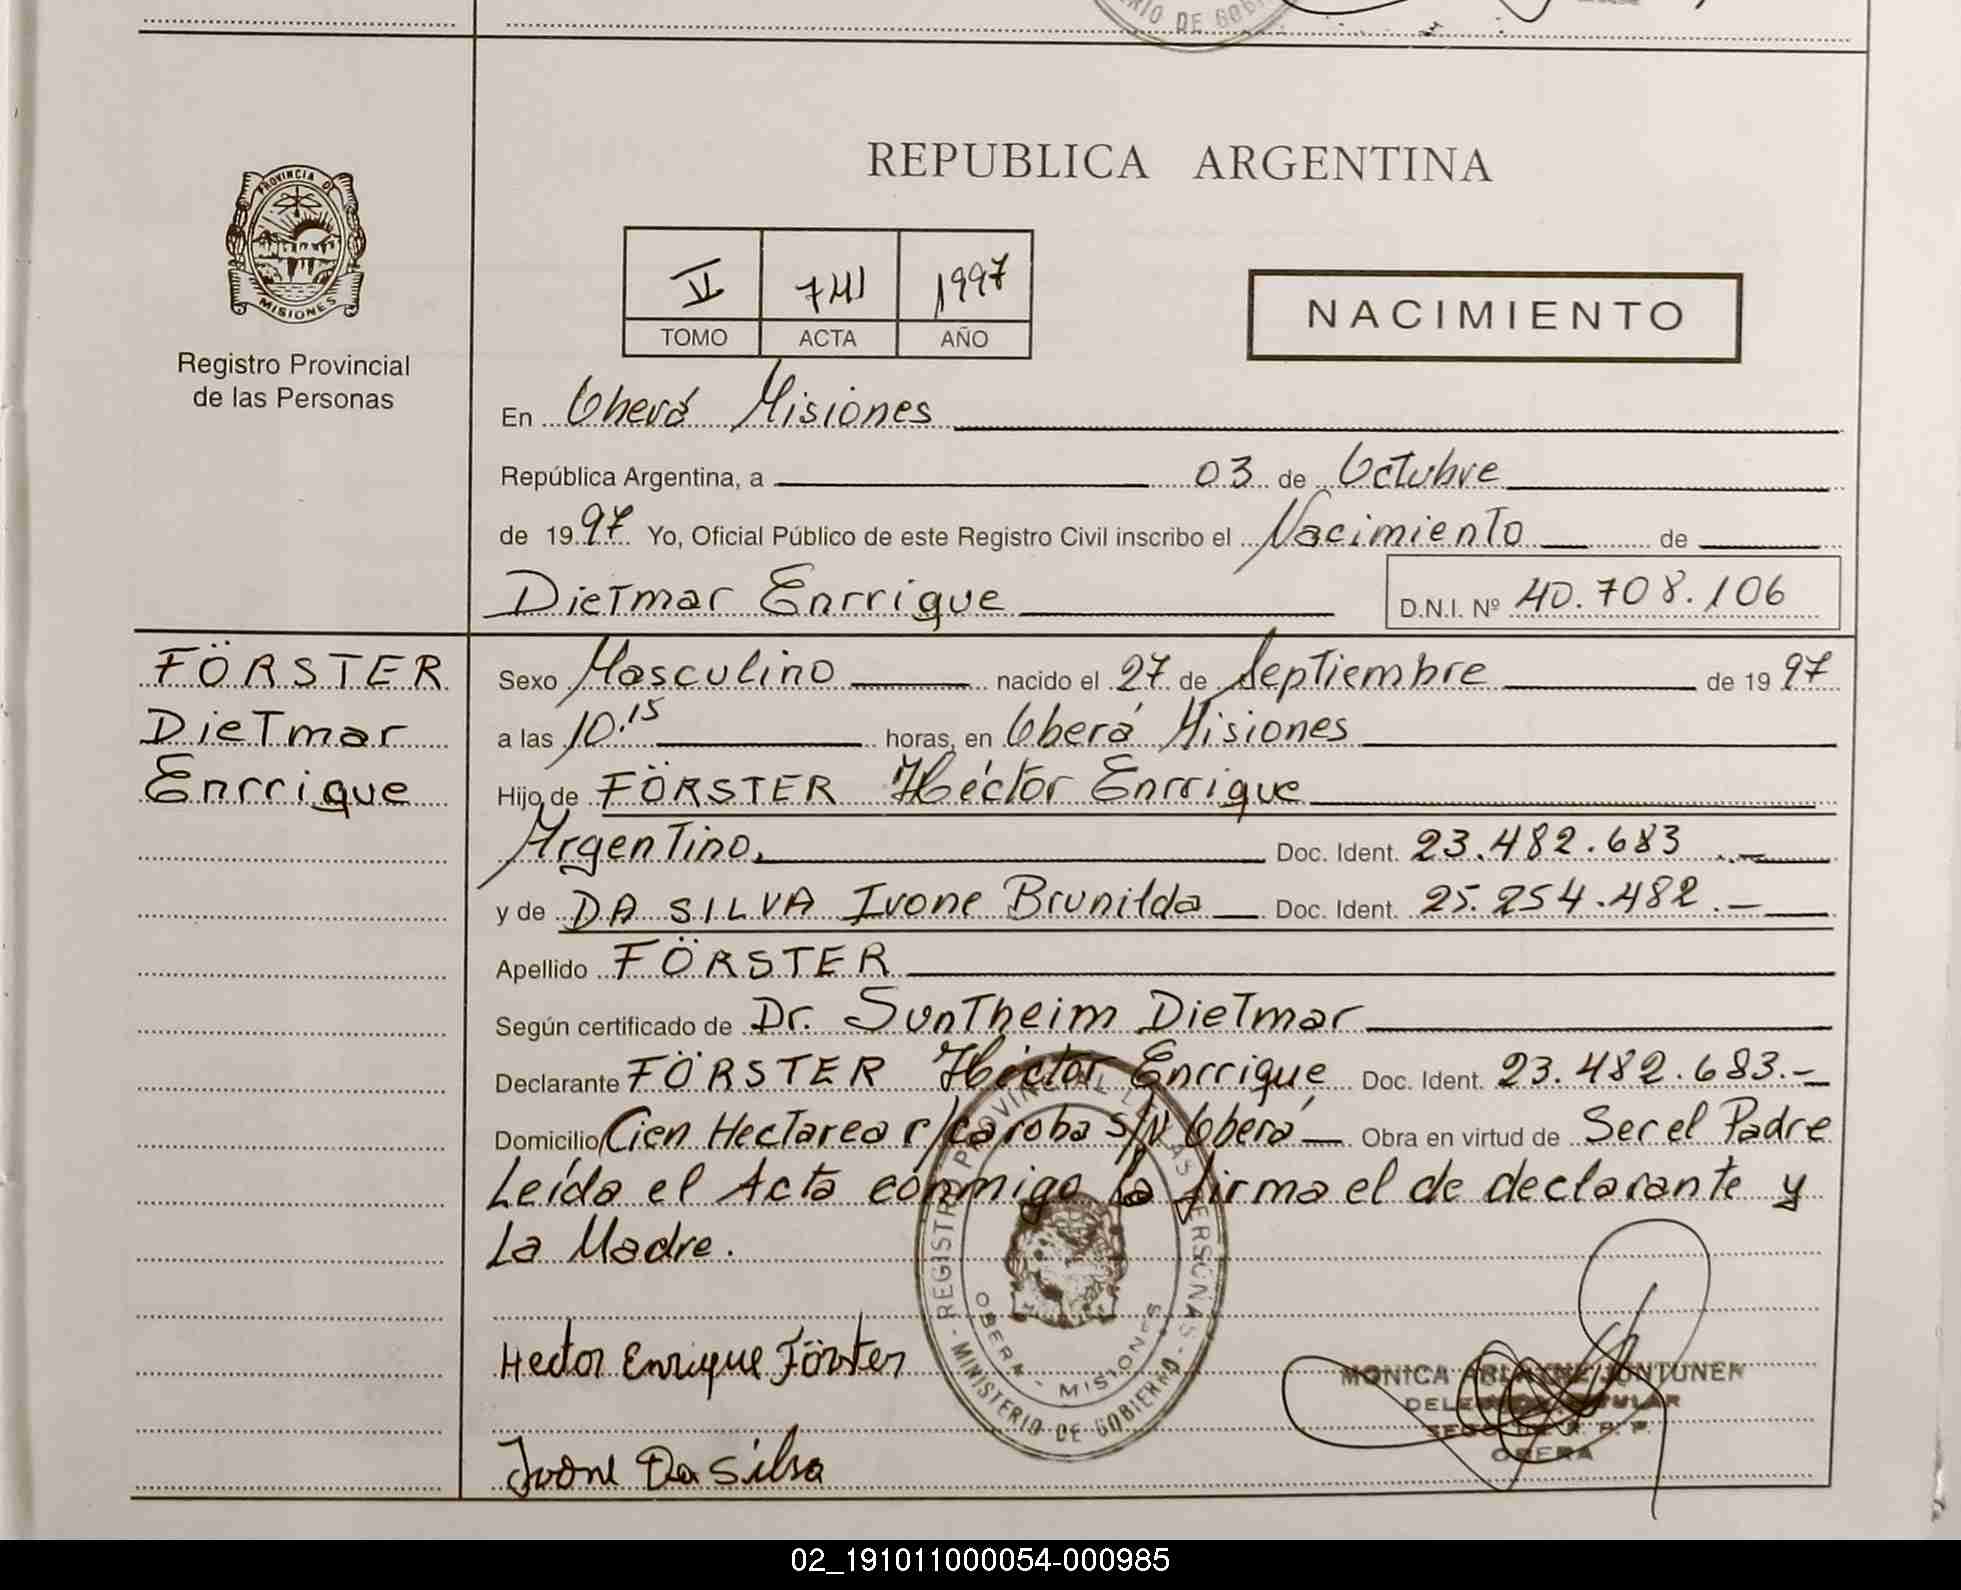 REPUBLICA ARGENTINA
PROVINCIA DE
MISIONES
Registro Provincial
de las Personas
II 741 1997
TOMO ACTA AÑO
NACIMIENTO
En Oberá Misiones
República Argentina, a 03 de Octubre
de 1997 Yo, Oficial Público de este Registro Civil inscribo el Nacimiento de
Dietmar Enrrique D.N.I. Nº 40.708.106
FÖRSTER
Dietmar
Enrrique
Sexo Masculino nacido el 27 de Septiembre de 1997
a las 10:15 horas, en Oberá Misiones
Hijo de FÖRSTER Héctor Enrrique
Argentino, Doc. Ident. 23.482.683.-
y de DA SILVA Ivone Brunilda Doc. Ident. 25.254.482.-
Apellido FÖRSTER
Según certificado de Dr. Suntheim Dietmar
Declarante FÖRSTER Héctor Enrrique Doc. Ident. 23.482.683.-
Domicilio Cien Hectarea c/caroba S/N Oberá Obra en virtud de Ser el Padre
Leída el Acta conmigo la firma el de declarante y
La Madre.
REGISTRO PROVINCIAL DE LAS PERSONAS
OBERA - MISIONES
- MINISTERIO DE GOBIERNO -
Hector Enrique Förster
Ivone Da Silva
MONICA JUNTUNEN
OBERA
02_191011000054-000985